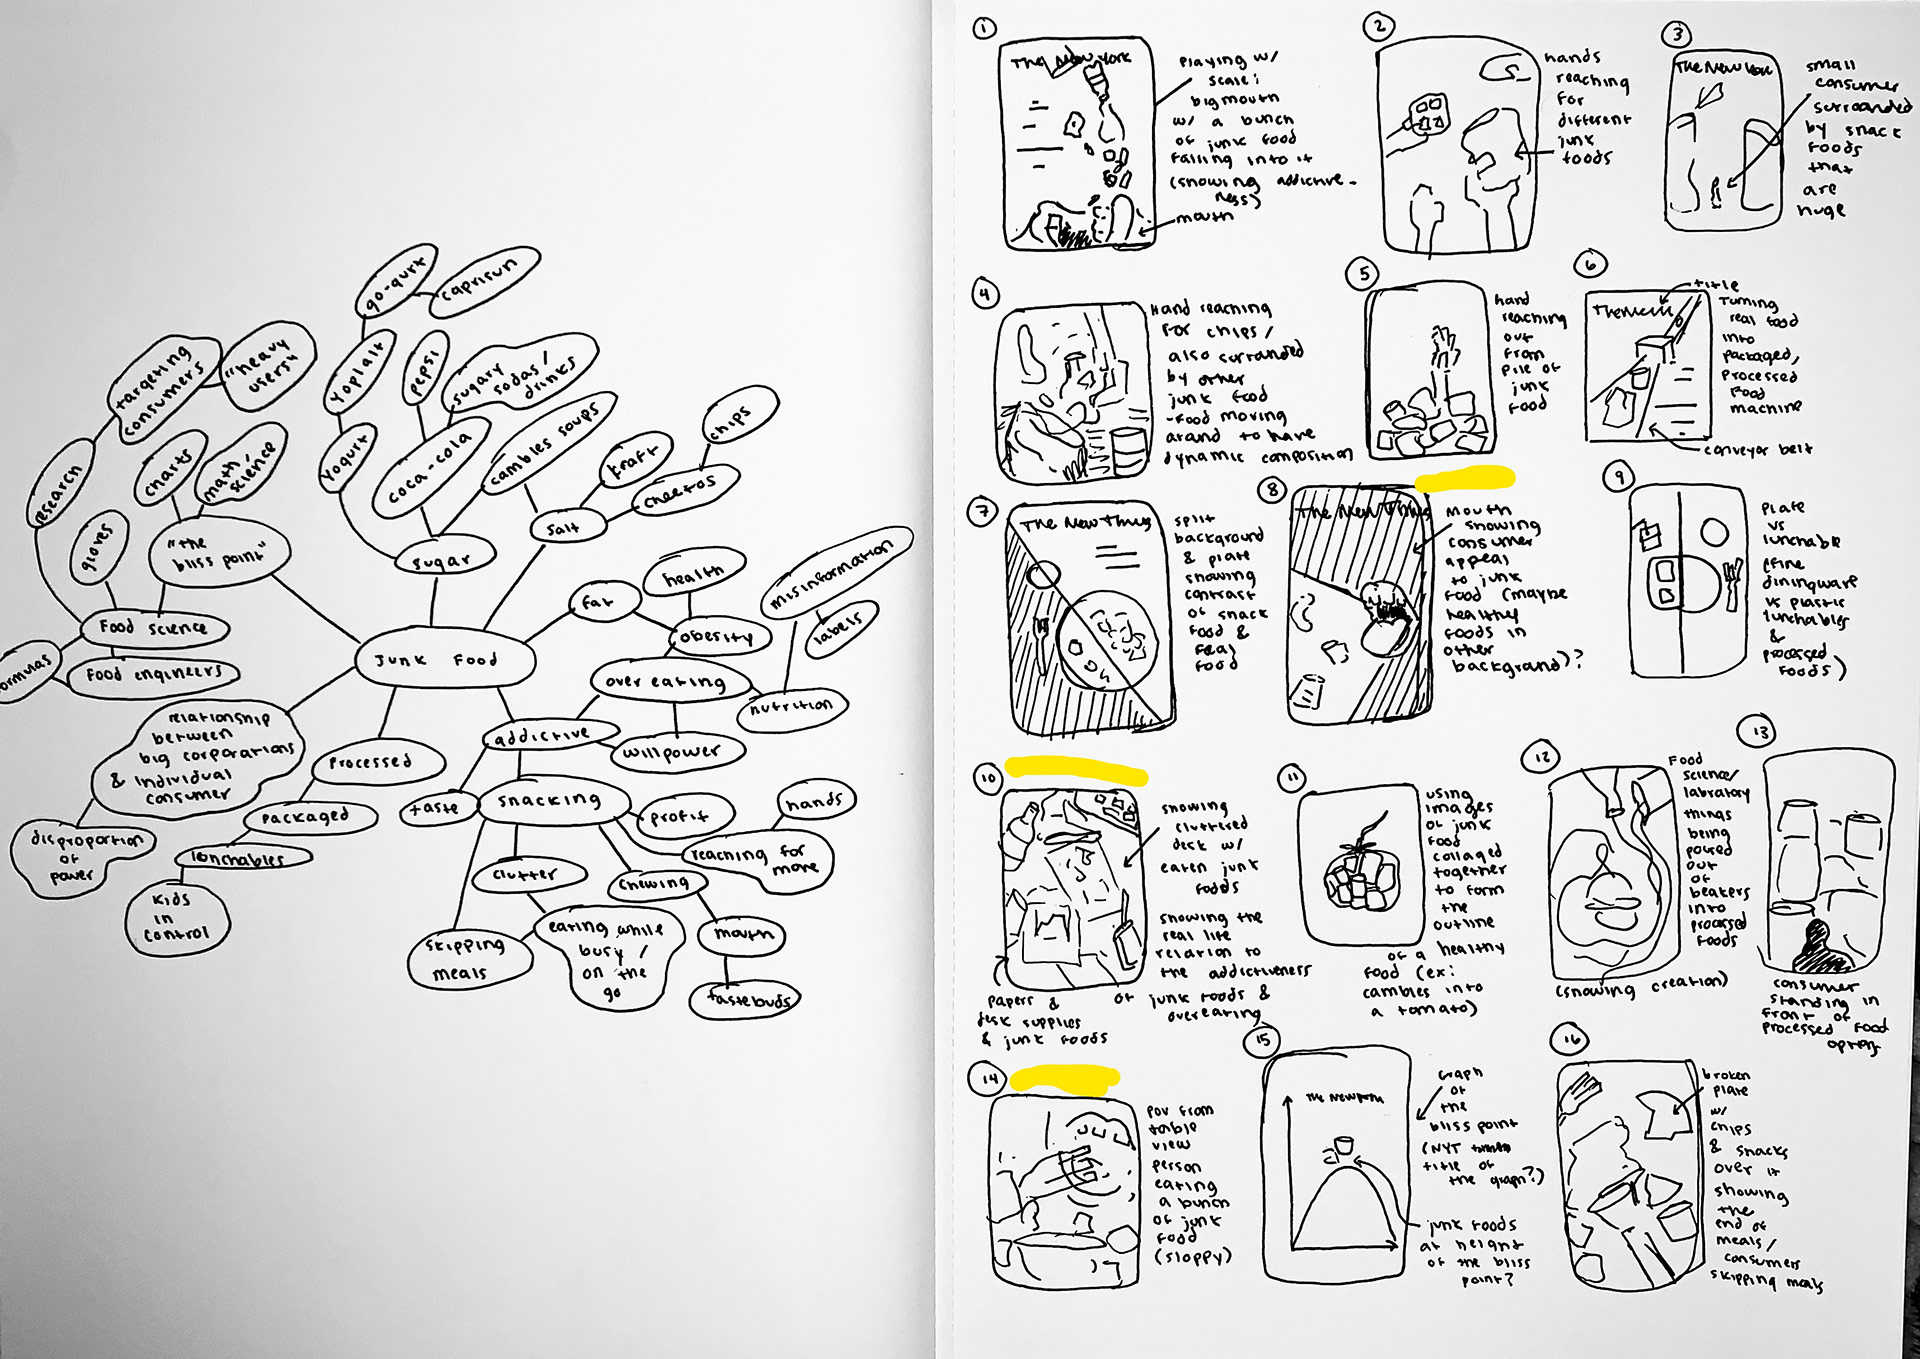 go-qurt
caprisun
targeting
consumers
"heavy
users"
Yoplait
pepsi
sugary
sodas/
drinks
research
charts
math/
science
Yogurt
coca-cola
cambles soups
kraft
chips
cheetos
gloves
"the
bliss point"
sugar
salt
fat
health
misinformation
labels
obesity
Food science
Food engineers
ormulas
Junk Food
over eating
nutrition
willpower
addictive
relationship
between
big corporations
& individual
consumer
Processed
taste
snacking
profit
hands
packaged
disproportion
of
power
lunchables
reaching for
more
clutter
chewing
kids
in
control
skipping
meals
eating while
busy/
on the
go
mouth
tastebuds
1
The New York
Playing w/
scale:
big mouth
w/ a bunch
of junk food
falling into it
(showing addictive-
ness)
mouth
2
hands
reaching
for
different
junk
foods
3
The New York
small
consumer
surrounded
by snack
foods
that
are
huge
4
Hand reaching
for chips/
also surrounded
by other
junk food
-food moving
around to have
dynamic composition
5
hand
reaching
out
from
pile of
junk
food
6
title
Turning
real food
into
packaged,
processed
food
machine
conveyor belt
7
The New Times
split
background
& plate
showing
contrast
of snack
food &
real
food
8
The New Times
Mouth
showing
consumer
appeal
to junk
food (maybe
healthy
foods in
other
background)?
9
Plate
vs
lunchable
(fine
diningware
vs plastic
lunchables
&
processed
foods)
10
showing
cluttered
desk w/
eaten junk
foods
showing the
real life
relation to
the addictiveness
of junk foods &
overeating
papers &
desk supplies
& junk foods
11
using
images
of junk
food
collaged
together
to form
the
outline
of a healthy
food (ex:
cambles into
a tomato)
12
Food
science/
labratory
things
being
poured
out
of
beakers
into
processed
foods
(showing creation)
13
consumer
standing in
front of
processed food
options
14
pov from
table
view
person
eating
a bunch
of junk
food
(sloppy)
15
Graph
of
the
bliss point
(NYT
title of
the graph?)
junk foods
at height
of the bliss
point?
16
broken
plate
w/
chips
& snacks
over it
showing
the
end of
meals/
consumers
skipping meals